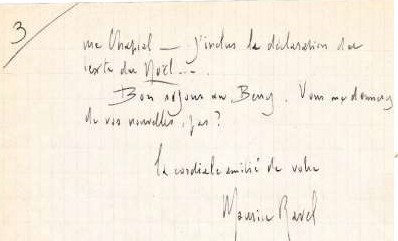 3
rue Chaptal — j'inclus la déclaration du
texte du Noël...
Bon séjour au Berry. Vous me donnerez
de vos nouvelles, pas?
La cordiale amitié de votre
Maurice Ravel